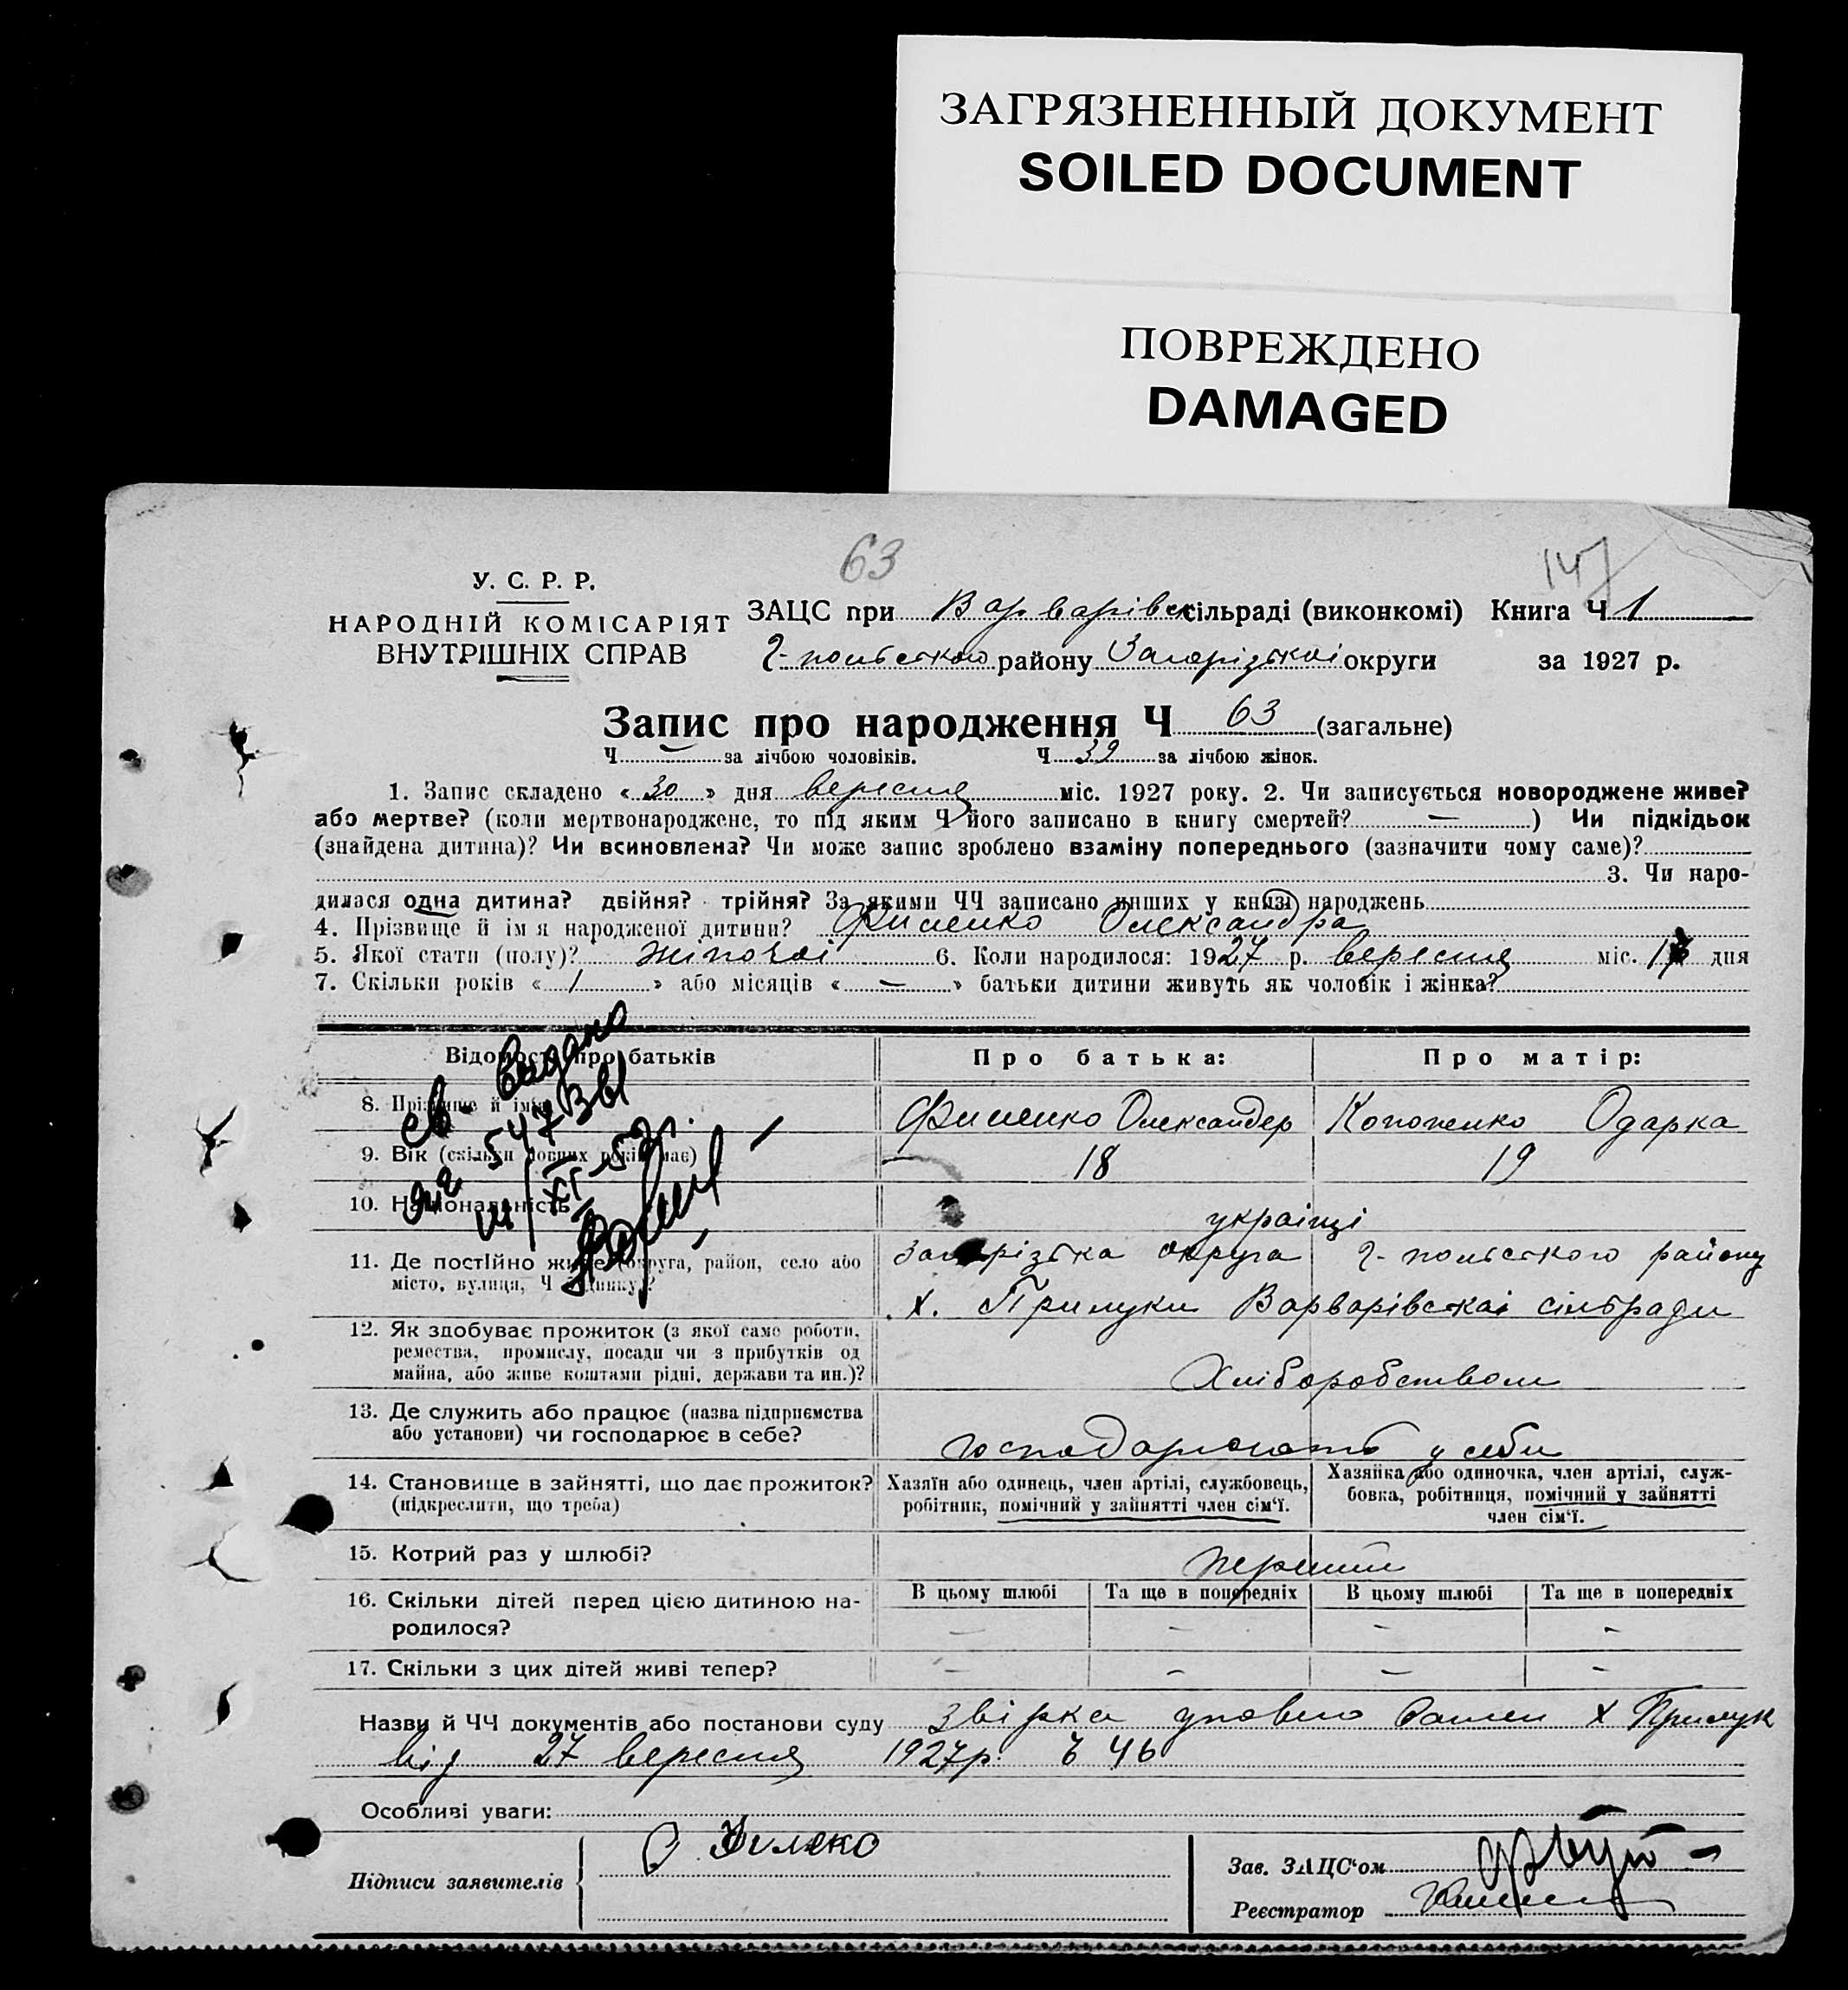 ЗАГРЯЗНЕННЫЙ ДОКУМЕНТ
SOILED DOCUMENT
ПОВРЕЖДЕНО
DAMAGED
63
147
У. С. Р. Р.
НАРОДНІЙ КОМІСАРІЯТ
ВНУТРІШНІХ СПРАВ
ЗАЦС при Варварівск сільраді (виконкомі) Книга Ч 1
Г-польского району Запорізької округи за 1927 р.
Запис про народження Ч 63 (загальне)
Ч — за лічбою чоловіків. Ч 39 за лічбою жінок.
1. Запис складено «30» дня вересня міс. 1927 року. 2. Чи записується новороджене живе?
або мертве? (коли мертвонароджене, то під яким Ч його записано в книгу смертей? — ) Чи підкідьок
(знайдена дитина)? Чи всиновлена? Чи може запис зроблено взаміну попереднього (зазначити чому саме)?
3. Чи наро-
дилася одна дитина? двійня? трійня? За якими ЧЧ записано инших у книзі народжень
4. Прізвище й ім я народженої дитини? Филенко Олександра
5. Якої стати (полу)? жіночої 6. Коли народилося: 1927 р. вересня міс. дня
7. Скільки років « 1 » або місяців « — » батьки дитини живуть як чоловік і жінка?
Відомості про батьків Про батька: Про матір:
8. Прізвище й імя Филенко Олександер Кононенко Одарка
9. Вік (скільки повних років має) 18 19
10. Національність українці
11. Де постійно живе (округа, район, село або Запорізька округа Г-польского району
місто, вулиця, Ч будинку)? х. Прилуки Варварівскаі сільради
12. Як здобуває прожиток (з якої саме роботи,
ремества, промислу, посади чи з прибутків од
майна, або живе коштами рідні, держави та ин.)? Хліборобством
13. Де служить або працює (назва підприємства
або установи) чи господарює в себе? господарюють у себи
14. Становище в зайнятті, що дає прожиток? Хазяїн або одинець, член артілі, службовець, Хазяйка або одиночка, член артілі, служ-
(підкреслити, що треба) робітник, помічний у зайнятті член сім'ї. бовка, робітниця, помічний у зайнятті
член сім'ї.
15. Котрий раз у шлюбі? перший
В цьому шлюбі Та ще в попередніх В цьому шлюбі Та ще в попередніх
16. Скільки дітей перед цією дитиною на- — — — —
родилося?
17. Скільки з цих дітей живі тепер? — — — —
св. Видано
547
XI
Назви й ЧЧ документів або постанови суду х Прилук
від 27 вересня 1927 р. Ч 46
Особливі уваги:
Підписи заявителів
Зав. ЗАЦС'ом
Реєстратор